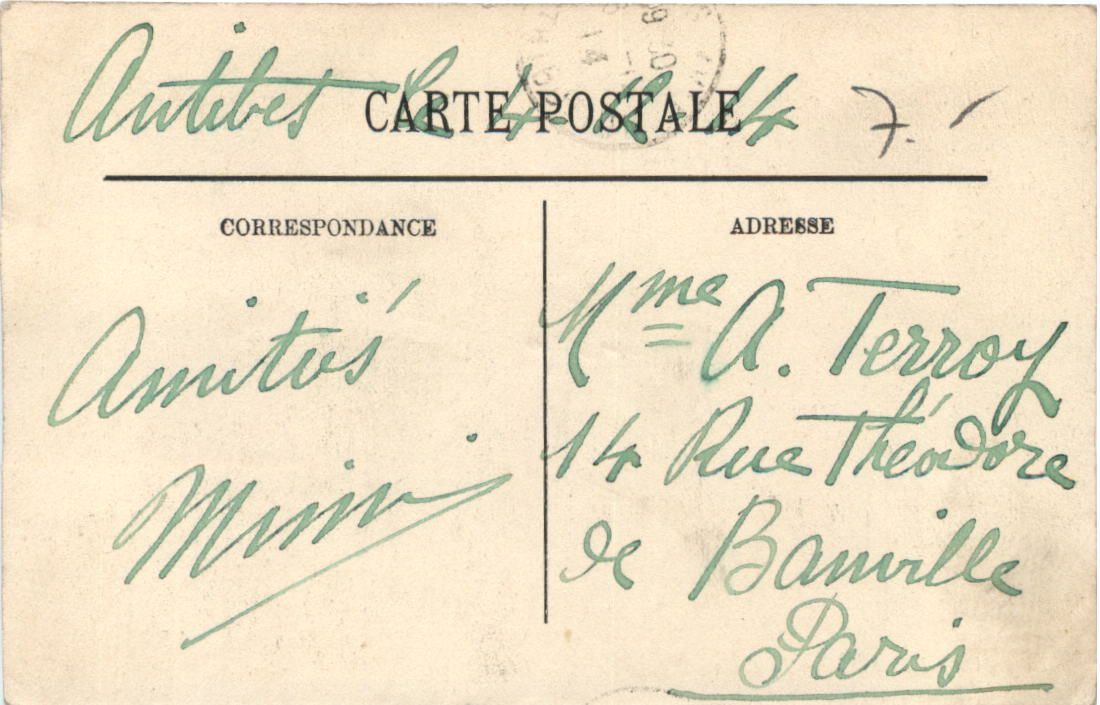 Antibes le 4 12 14
CARTE POSTALE
7.
CORRESPONDANCE
ADRESSE
Amitiés
Mimi
Mme A. Terroy
14 Rue Théodore
de Banville
Paris